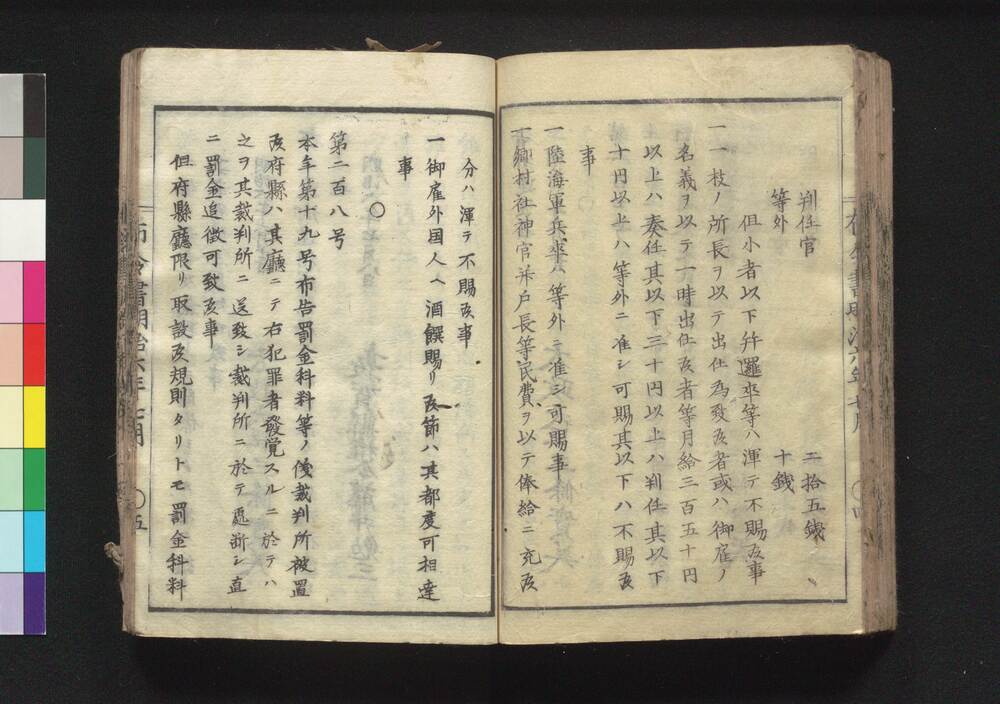 判任官　二拾五錢
等外　十錢
但小者以下幷邏卒等ハ渾テ不賜候事
一一枝ノ所長ヲ以テ出仕為致候者或ハ御雇ノ
名義ヲ以テ一時出仕候者等月給三百五十円
以上ハ奏任其以下三十円以上ハ判任其以下
十円以上ハ等外ニ准シ可賜其以下ハ不賜候
事
一陸海軍兵卒ハ等外ニ准シ可賜事
一鄕村社神官幷戶長等民費ヲ以テ俸給ニ充候
分ハ渾テ不賜候事
一御雇外国人ヘ酒饌賜リ候節ハ其都度可相達
事
〇
第二百八号
本年第十九号布告罰金科料等ノ儀裁判所被置
候府縣ハ其廳ニテ右犯罪者發覚スルニ於テハ
之ヲ其裁判所ニ送致シ裁判所ニ於テ處断シ直
ニ罰金追徴可致候事
但府縣廳限リ取設候規則タリトモ罰金科料
布令書明治六年七月　〇五